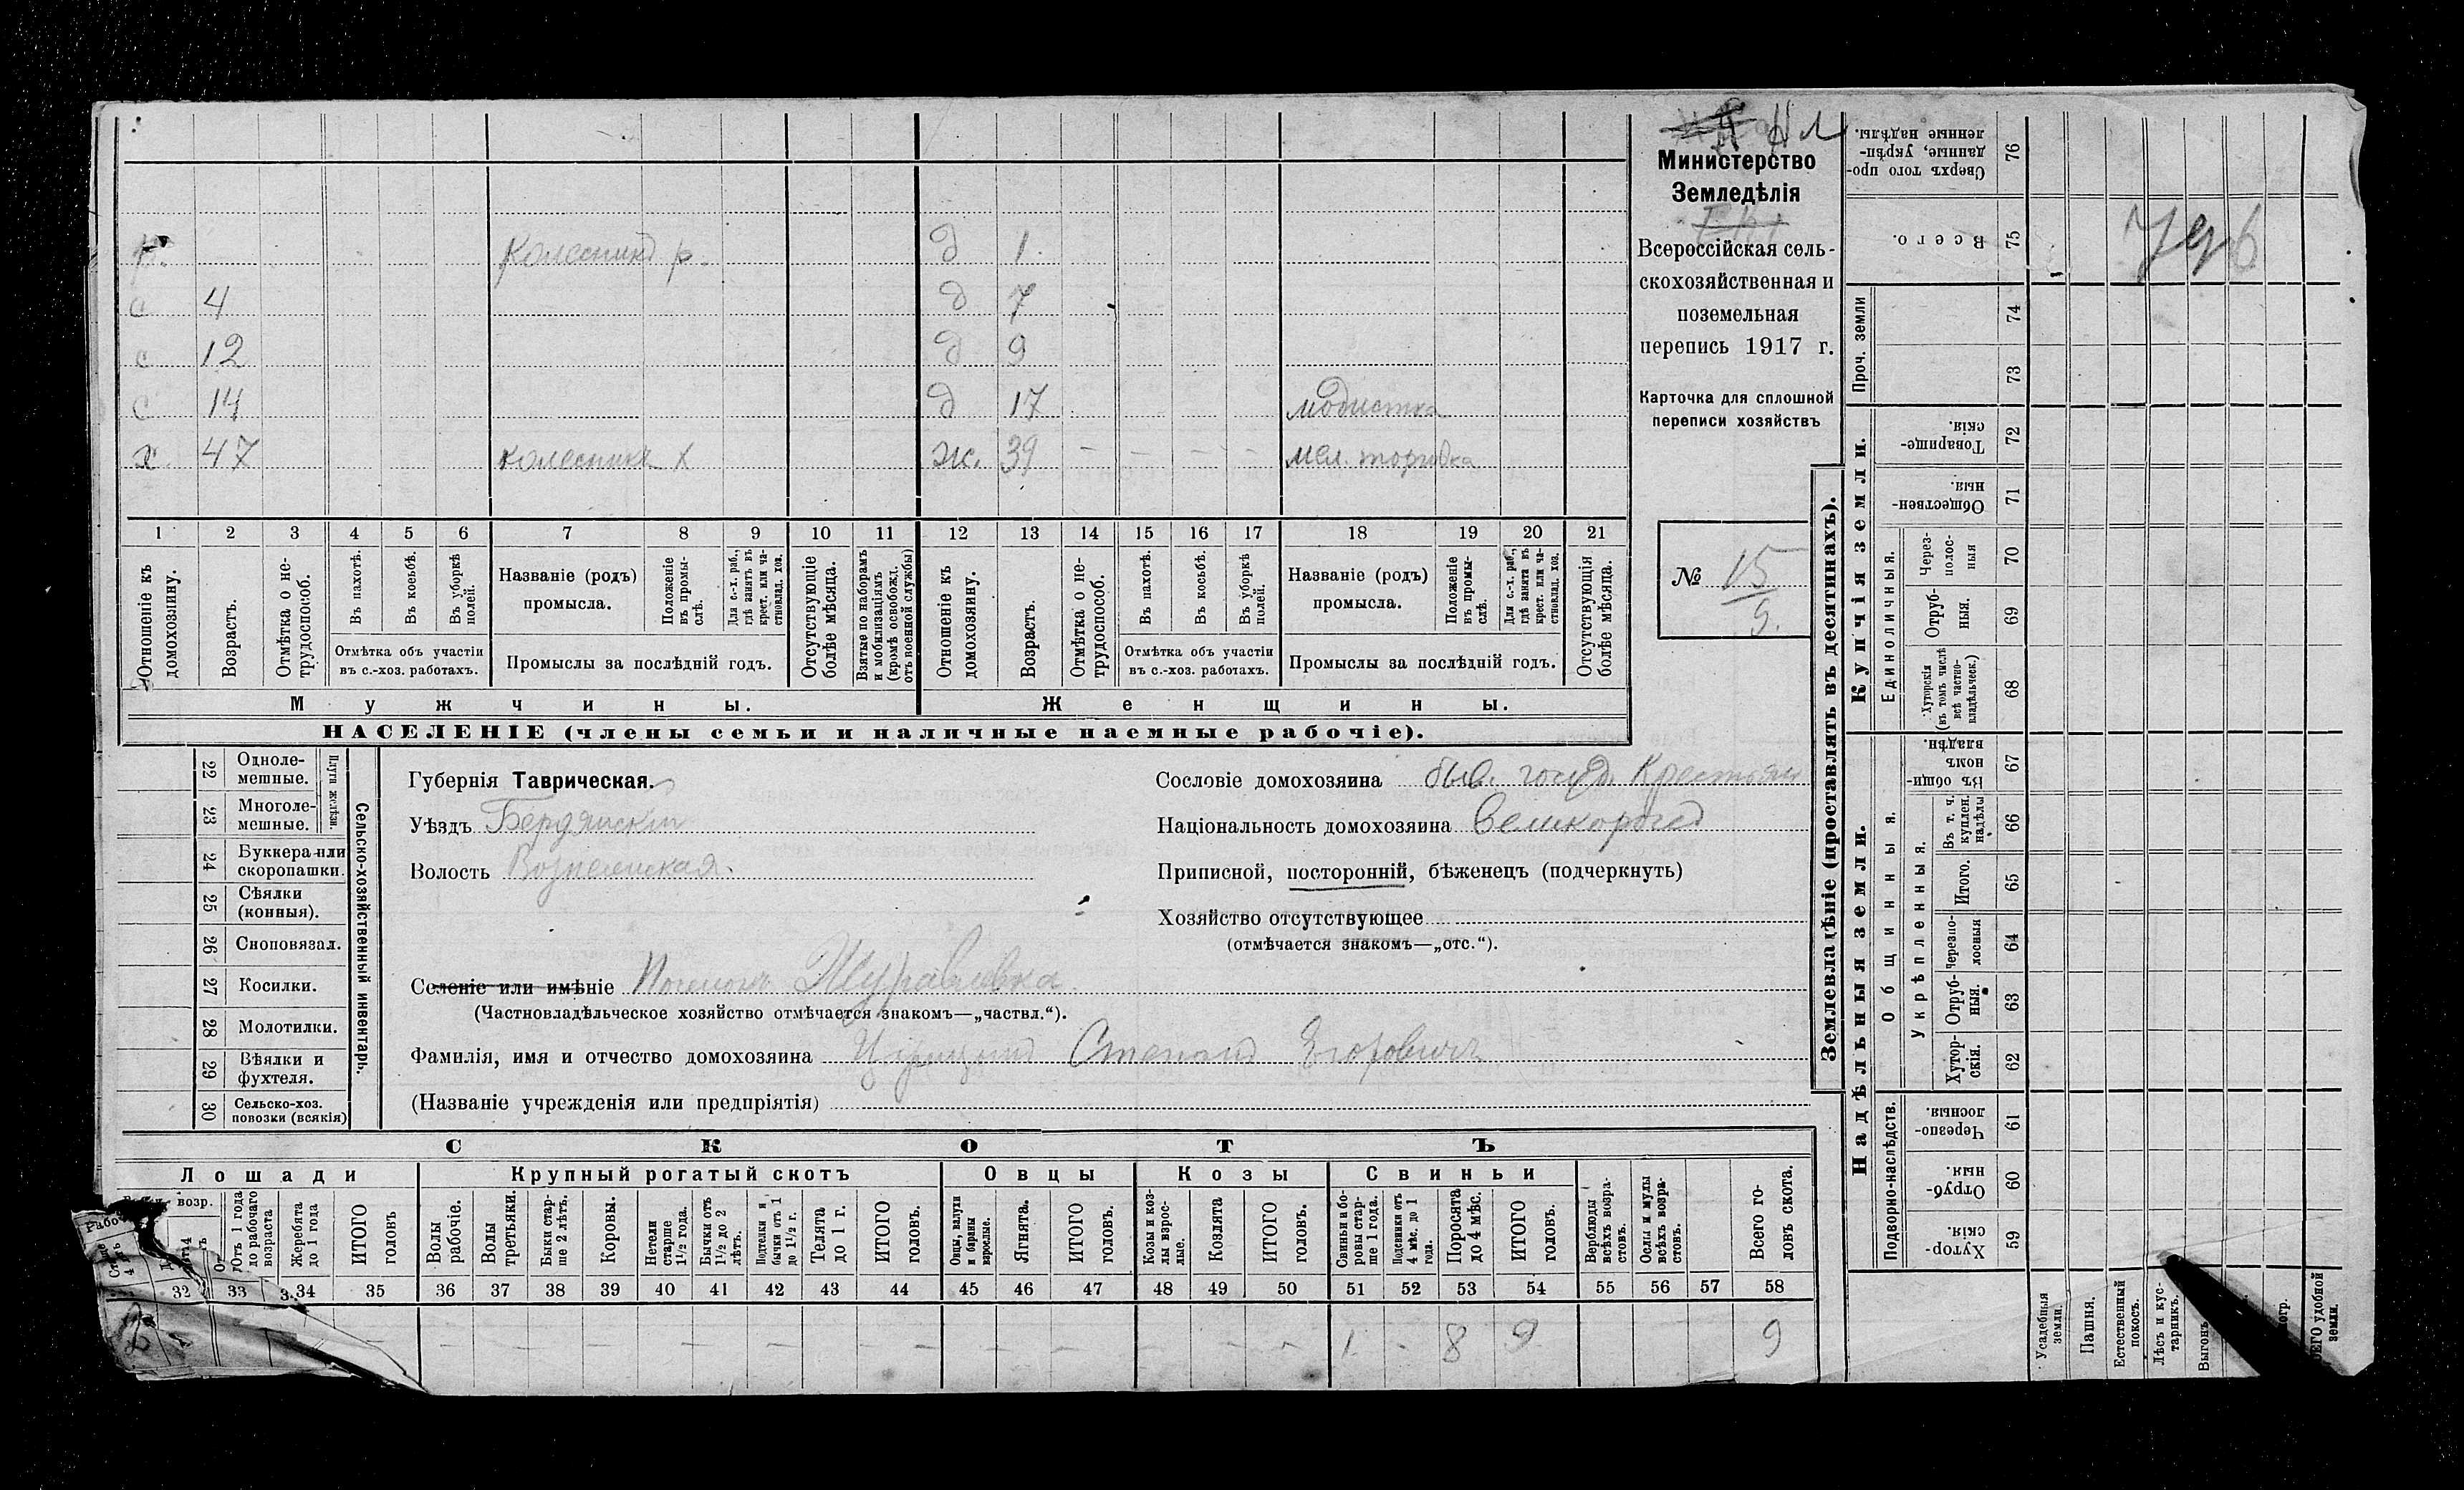 4 Л
Министерство
Земледѣлія
Всероссійская сель-
скохозяйственная и
поземельная
перепись 1917 г.
Карточка для сплошной
переписи хозяйствъ
№ 15
9.
р. колесникъ р. д 1.
с 4 д 7
с 12 д 9
с 14 д 17 модистка
х. 47 колесникъ х ж. 39 – – – – мел. торговка
1 2 3 4 5 6 7 8 9 10 11 12 13 14 15 16 17 18 19 20 21
Отношеніе къ домохозяину.
Возрастъ.
Отмѣтка о не-трудоспособ.
Въ пахотѣ.
Въ косьбѣ.
Въ уборкѣ полей.
Отмѣтка объ участіи въ с.-хоз. работахъ.
Названіе (родъ) промысла.
Положеніе въ промы-слѣ.
Для с.-х. раб., гдѣ занятъ въ крест. или ча-стновлад. хоз.
Промыслы за послѣдній годъ.
Отсутствующіе болѣе мѣсяца.
Взятые по наборамъ и мобилизаціямъ (кромѣ освобожд. отъ военной службы)
Отношеніе къ домохозяину.
Возрастъ.
Отмѣтка о не-трудоспособ.
Въ пахотѣ.
Въ косьбѣ.
Въ уборкѣ полей.
Отмѣтка объ участіи въ с.-хоз. работахъ.
Названіе (родъ) промысла.
Положеніе въ промы-слѣ.
Для с.-х. раб., гдѣ занята въ крест. или ча-стновлад. хоз.
Промыслы за послѣдній годъ.
Отсутствующія болѣе мѣсяца.
Мужчины. Женщины.
НАСЕЛЕНІЕ (члены семьи и наличные наемные рабочіе).
22 Одноле-мешные.
23 Многоле-мешные.
Плуги желѣзн.
24 Буккера или скоропашки.
25 Сѣялки (конныя).
26 Сноповязал.
27 Косилки.
28 Молотилки.
29 Вѣялки и фухтеля.
30 Сельско-хоз. повозки (всякія)
Сельско-хозяйственный инвентарь.
Губернія Таврическая.
Уѣздъ Бердянскій
Волость Вознесенская.
Селеніе или имѣніе Поселокъ Журавлевка
(Частновладѣльческое хозяйство отмѣчается знакомъ—„частвл.“).
Фамилія, имя и отчество домохозяина Степанъ Егоровичъ
(Названіе учрежденія или предпріятія)
Сословіе домохозяина быв. госуд. Крестьян
Національность домохозяина Великороссъ
Приписной, посторонній, бѣженецъ (подчеркнуть)
Хозяйство отсутствующее
(отмѣчается знакомъ—„отс.“).
СКОТЪ
Лошади Крупный рогатый скотъ Овцы Козы Свиньи
возр.
Отъ 1 года до рабочаго возраста
Жеребята до 1 года
ИТОГО головъ
Волы рабочіе.
Волы третьяки.
Быки стар-ше 2 лѣтъ.
Коровы.
Нетели старше 1½ года.
Бычки отъ 1½ до 2 лѣтъ.
Подтелки и бычки отъ 1 до 1½ г.
Телята до 1 г.
ИТОГО головъ.
Овцы, валухи и бараны взрослые.
Ягнята.
ИТОГО головъ.
Козы и коз-лы взрос-лые.
Козлята
ИТОГО головъ.
Свиньи и бо-ровы стар-ше 1 года.
Подсвинки отъ 4 мѣс. до 1 года.
Поросята до 4 мѣс.
ИТОГО головъ.
Верблюды всѣхъ возра-стовъ.
Ослы и мулы всѣхъ возра-стовъ.
Всего го-ловъ скота.
32 33 34 35 36 37 38 39 40 41 42 43 44 45 46 47 48 49 50 51 52 53 54 55 56 57 58
– – – – – – – – – – – – – – – 1 - 8 9 9
Землевладѣніе (проставлять въ десятинахъ).
Надѣльныя земли. Купчія земли. Проч. земли
Подворно-наслѣдств. Общинныя. Укрѣпленныя. Единоличныя.
Сверхъ того про-данные, укрѣп-ленные надѣлы. 76
Всего. 75
74
73
Товарище-скія. 72
Обществен-ныя. 71
Через-полос-ныя 70
Отруб-ныя. 69
Хуторскія (въ томъ числѣ всѣ частно-владѣльческ.) 68
Въ общин-номъ владѣн. 67
Въ т. ч. куплен. надѣлы 66
Итого. 65
Черезпо-лосныя 64
Отруб-ныя. 63
Хутор-скія. 62
Черезпо-лосныя. 61
Отруб-ныя. 60
Хутор-скія. 59
Усадебныя земли.
Пашня.
Естественный покосъ.
Лѣсъ и кус-тарникъ.
Выгонъ
удобной земли.